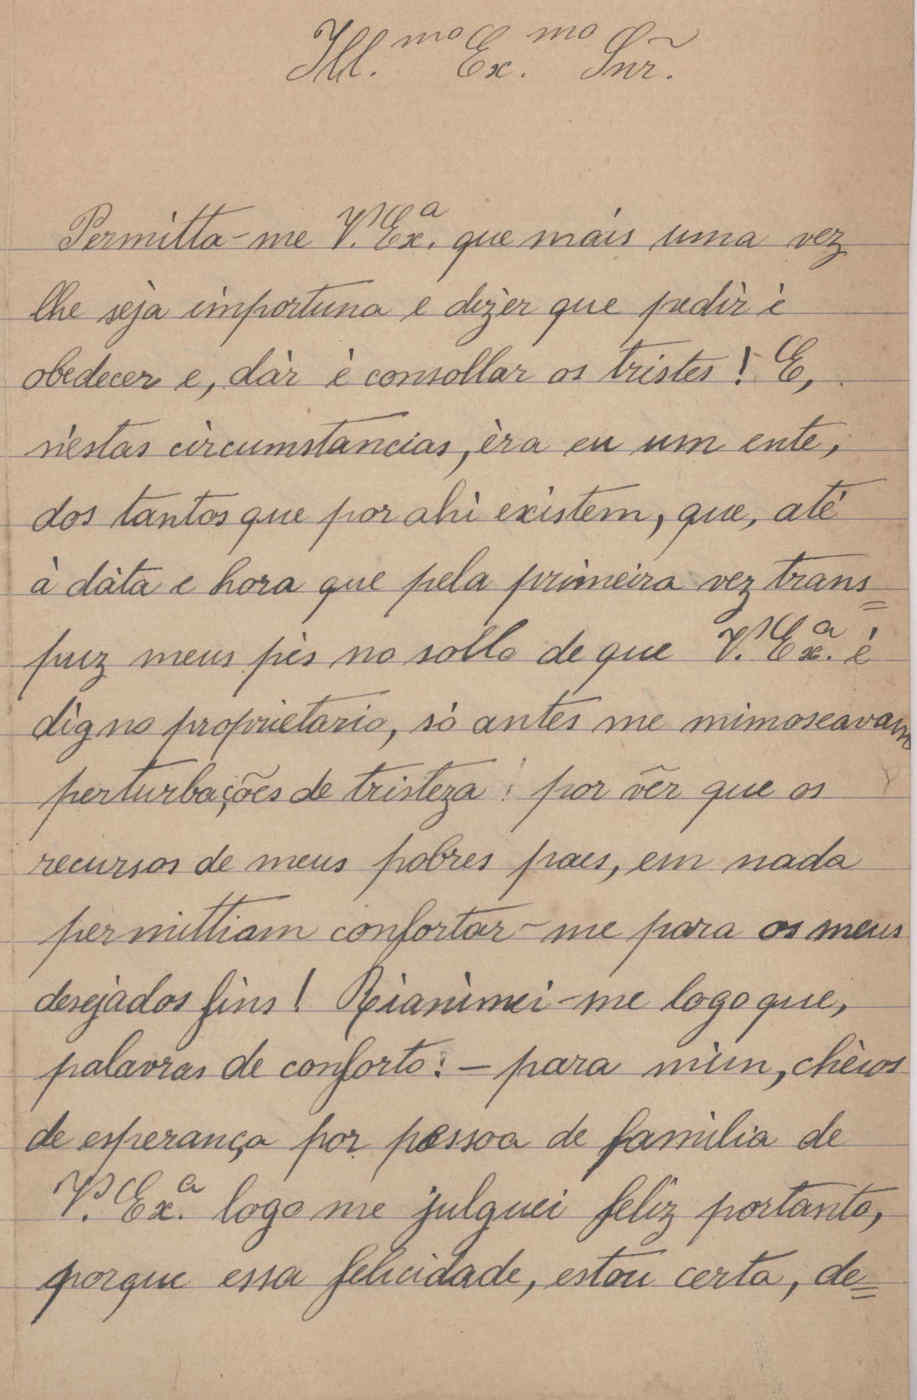 Ill.mo Ex.mo Snr̃.
Permitta-me V. Ex.a que máis uma vez
lhe sèja importuna e dizèr que pedìr è
obedecer e, dàr è consollar os tristes! E,
n'estas circumstancias, èra eu um ente,
dos tantos que por ahì existem, que, até
à dàta e hora que pela primeira vez trans=
puz meus pès no sollo de que V. Ex.a é
digno proprietario, só antes me mimoseavam
perturbações de tristeza! por vêr que os
recursos de meus pobres paes, em nada
permittiam confortar-me para os meus
desejados fins! Rianimei-me logo que,
palavras de conforto: - para mim, chèios
de esperança por pessoa de familia de
V. Ex.a logo me julguei feliz portanto,
porque essa felicidade, estou certa, de=